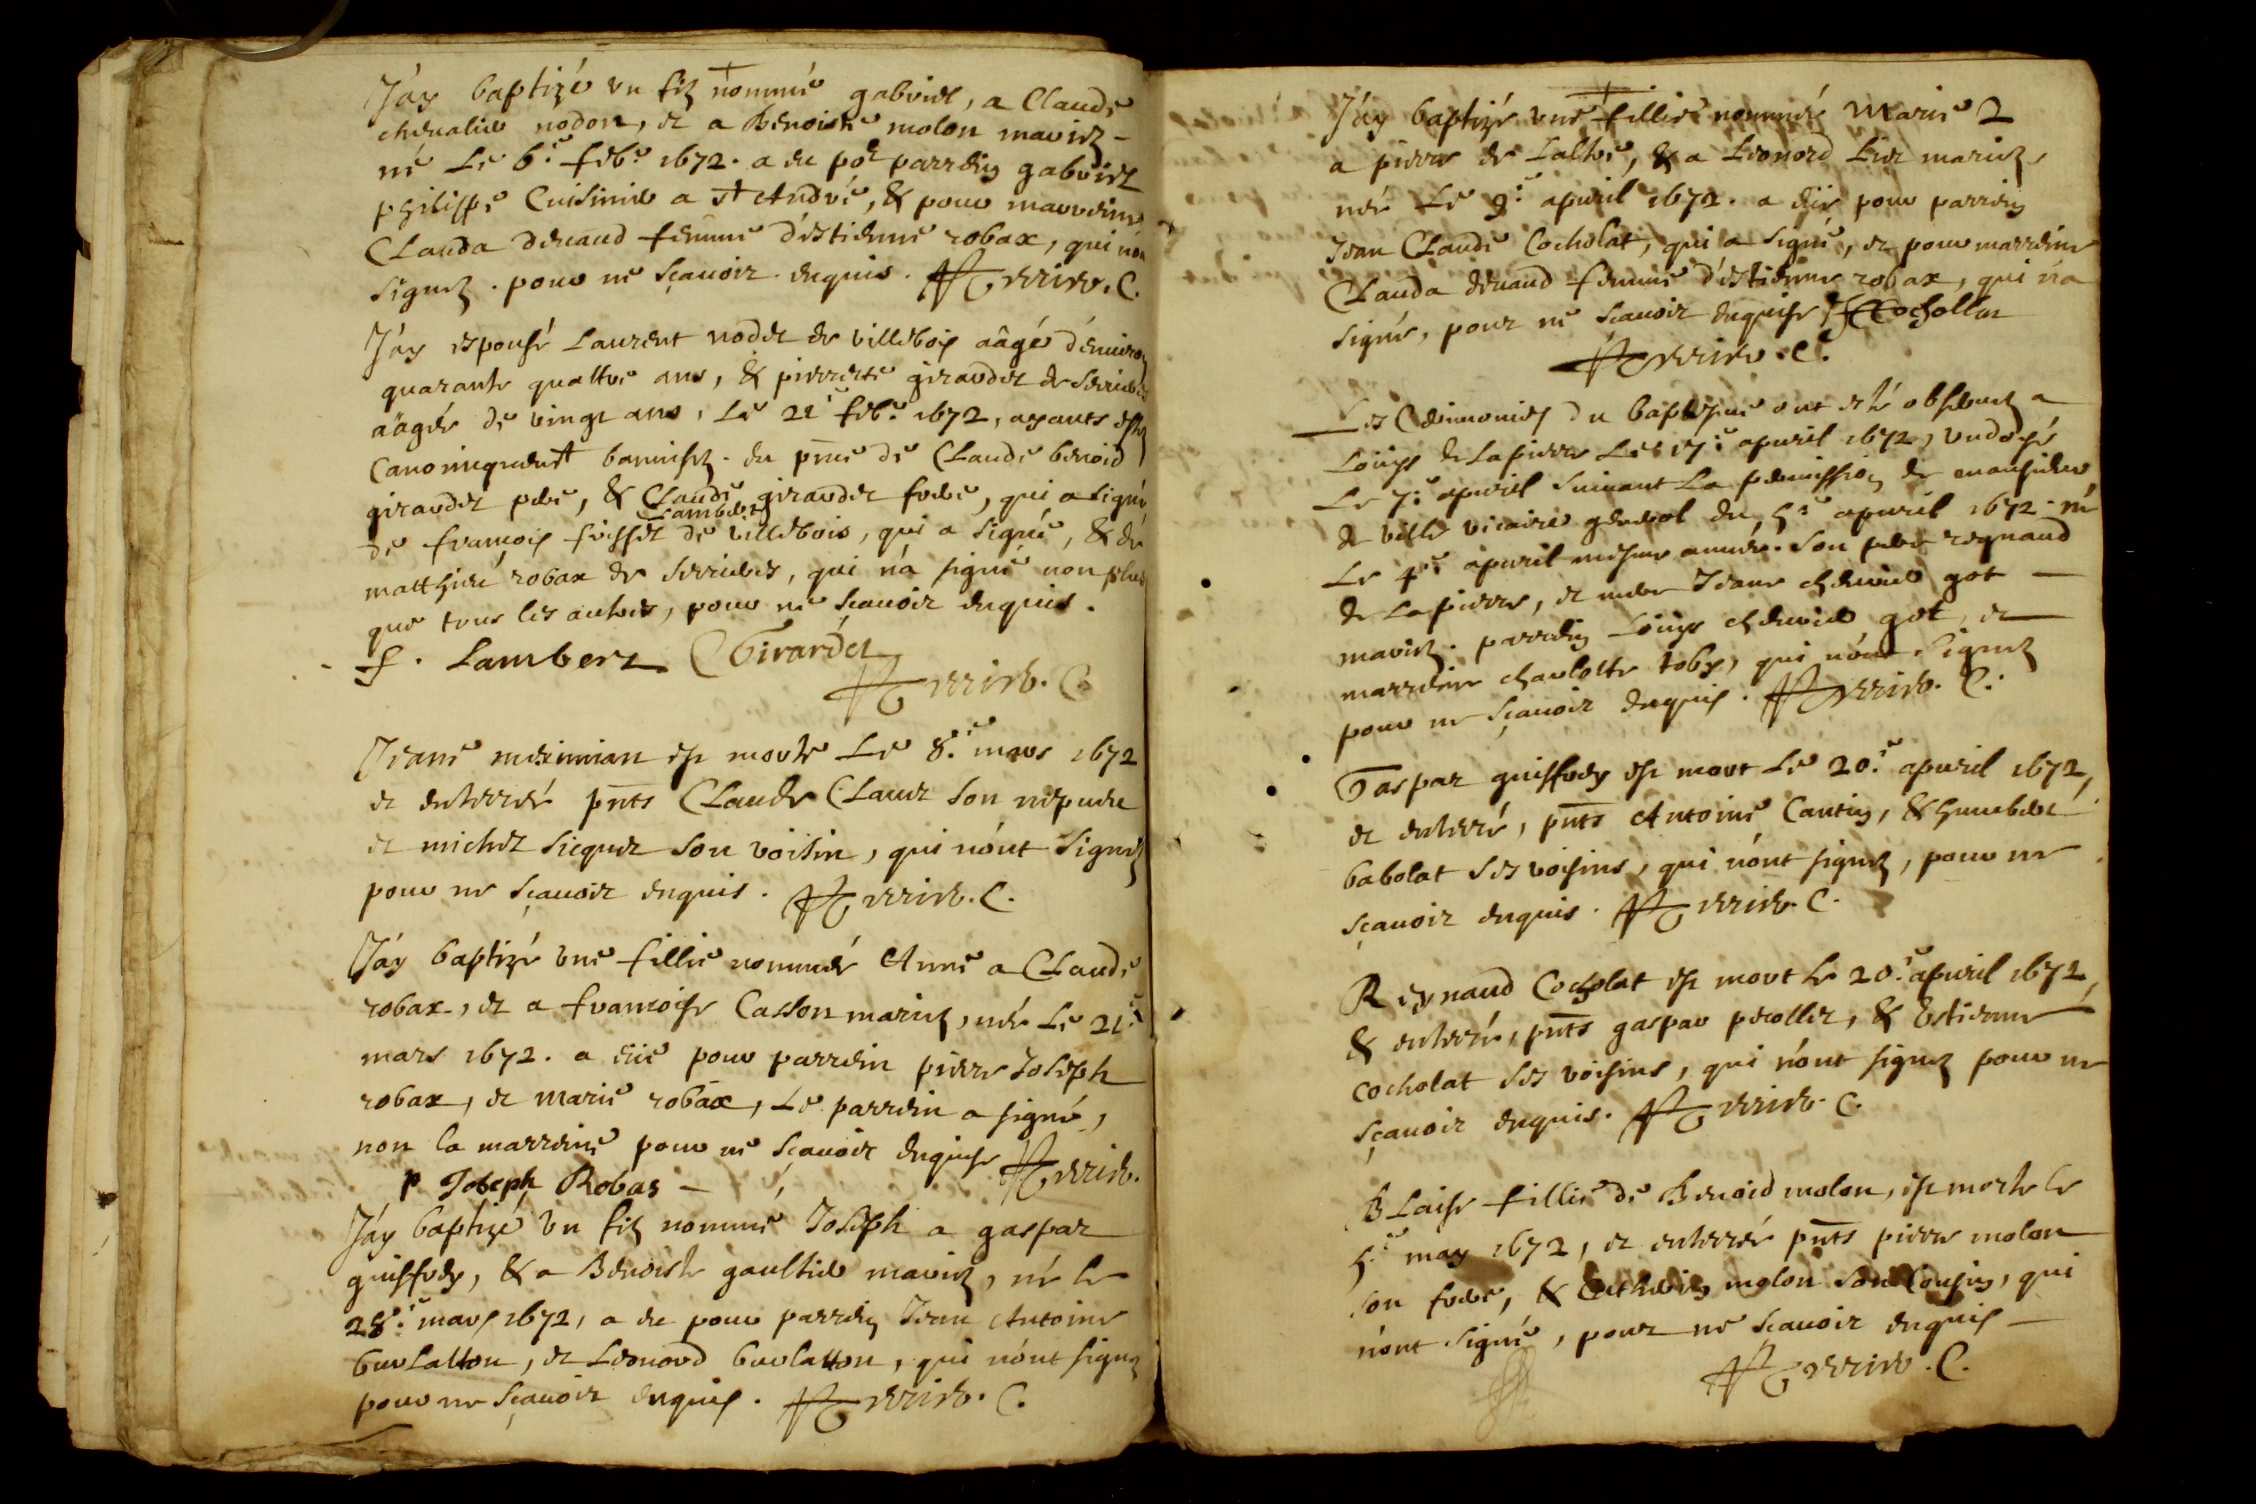 Jáy baptizé vn filz nommé gabriel, a Claude
cheualier nodon, et a Benoiste molon mariez –
né Le 6.e feb.e 1672. a eu por parrein gabriel
philippe Cuisinier a st André, & pour marreine
CLauda deuaud femme d'estienne robax, qui nón
signez. pour ne sçauoir enquis. Perrier. C.
Jáy espousé Laurent nodet de villebois aâgé d'enuiron
quarante quattre ans, & pierrette girardet de Serrieres
aâgée de vingt ans, Le 21e feb.e 1672, ayants estez
Canoniquement bannisez. en pnce de CLaude benoid
girardet pere, & CLaude girardet frere, qui a signé
Lambert
de francois de villebois, qui a signé, & de
matthieu robax de serrieres, qui ná signé non plus
que tous les autres, pour ne sçauoir enquis.
f. Lambert C Girardet
Perrier. C
Jeane meximian est morte Le 8.e mars 1672
et enterreé pnts CLaude CLaur son nepueu
et michel sicquet son voisin, qui nónt signez
pour ne sçauoir enquis. Perrier. C.
Jáy baptizé vne fillie nommée Anne a CLaude
robax, et a francoise Casson mariez, née Le 21.e
mars 1672. a eüe pour parrein pierre Joseph
robax, et marie robax, Le parrein a signé,
non la marreine pour ne sçauoir enquise Perrier.
p Joseph Robas –
Jáy baptizé vn filz nommé Joseph a gaspar
guiffrey, & a Benoiste gaultier mariez, né le
28.e mars 1672, a eu pour parrein Jean Antoine
burlatton, et Leonard burlatton, qui nónt signez
pour ne sçauoir enquis. Perrier. C.
Jáy baptizé vne fillie nommée Marie 2
a pierre de Lalliue, & a Leonord mariez,
née Le 9.e apuril 1672. a eüe pour parrein
Jean CLaude Cocholat, qui a signé, et pour marreine
CLauda deuaud femme d'estienne robax, qui ná
signé, pour ne sçauoir enquise Cochollat
Perrier. C.
Les Ceremonies du baptesme ont esté obseruez a
Loüys de Lapierre Le 17.e apuril 1672, vndoyé
Le 7.e apuril suiuant La permission de monsieur
de ville vicaire general du 5.e apuril 1672. né
Le 4.e apuril mesme année. Son pere regnaud
de Lapierre, et mere Jeane chereie got –
mariez. parrein Loüys chereie got, et
marreine charlotte toby, qui nónt signez
pour ne sçauoir enquis. Perrier. C.
Gaspar guiffrey est mort Le 20.e apuril 1672,
et enterré, pnts Antoine Cantin, & humbert
babolat ses voisins, qui nónt signez, pour ne
sçauoir enquis. Perrier. C.
Reynaud Cocholat est mort le 20.e apuril 1672,
& enterré, pnts gaspar perollet, & Estienne
cocholat ses voisins, qui nónt signez pour ne
sçauoir enquis. Perrier. C.
BLaise fillie de Benoid molon, est morte le
5.e may 1672, et enterrée pnts pierre molon
son frere, & molon son Cousin, qui
nónt signé, pour ne sçauoir enquis –
Perrier. C.